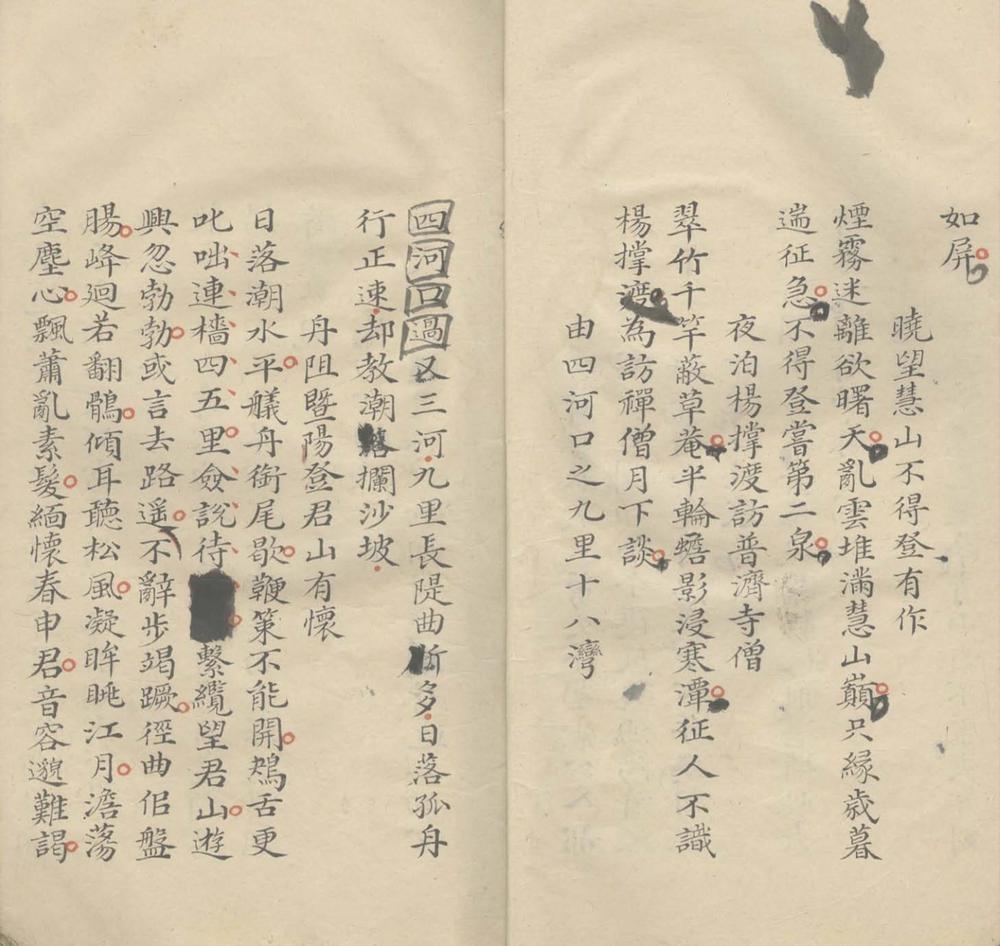 如屏
曉望慧山不得登有作
煙霧迷離欲曙天亂雲堆滿慧山巔只緣歲暮
遄征急不得登嘗第二泉
夜泊楊撐渡訪普濟寺僧
翠竹千竿蔽草菴半輪蟾影浸寒潭征人不識
楊撐渡為訪禪僧月下談
由四河口之九里十八灣
四河口過又三河九里長隄曲折多日落孤舟
行正速却教潮落攔沙坡
舟阻暨陽登君山有懷
日落潮水平艤舟銜尾歇鞭策不能開鴂舌更
叱咄連檣四五里僉説待繫纜望君山遊
興忽勃勃或言去路遥不辭步竭蹶徑曲佀盤
腸峰廻若翻鶻傾耳聽松風凝眸眺江月澹蕩
空塵心飄蕭亂素髮緬懷春申君音容邈難謁